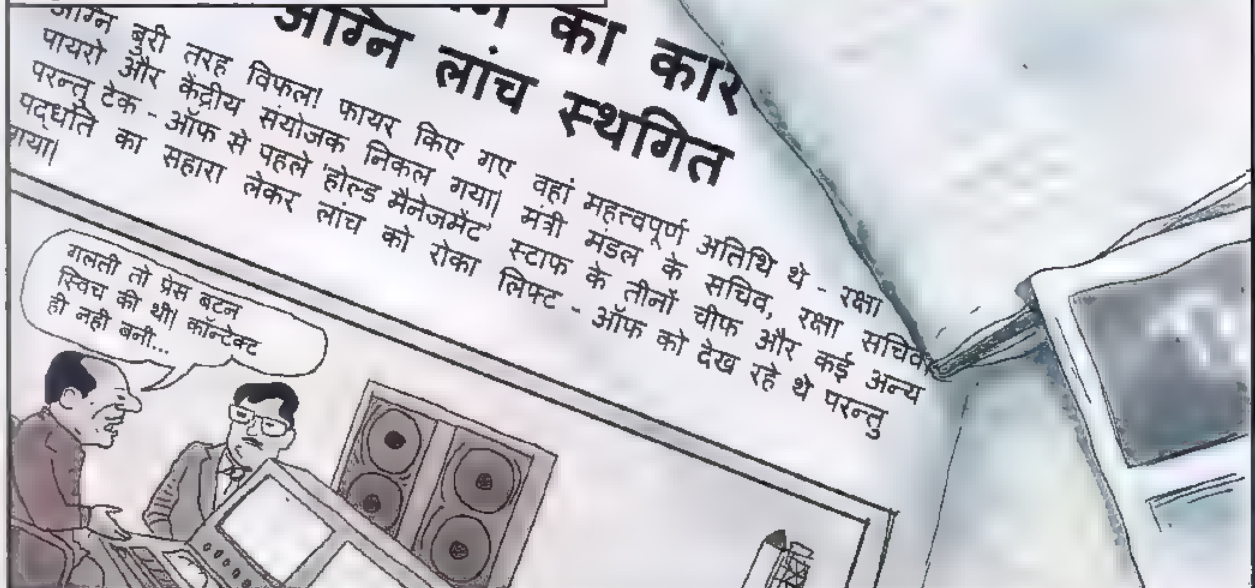 का कार
अग्नि लांच स्थगित
अग्नि बुरी तरह विफल! फायर किए गए वहां महत्त्वपूर्ण अतिथि थे - रक्षा
पायरो और केंद्रीय संयोजक निकल गया। मंत्री मंडल के सचिव, रक्षा सचिव,
परन्तु टेक - ऑफ से पहले 'होल्ड मैनेजमेंट' स्टाफ के तीनों चीफ और कई अन्य
पद्धति का सहारा लेकर लांच को रोका लिफ्ट - ऑफ को देख रहे थे परन्तु
गया।
गलती तो प्रेस बटन
स्विच की थी। कॉन्टेक्ट
ही नही बनी...